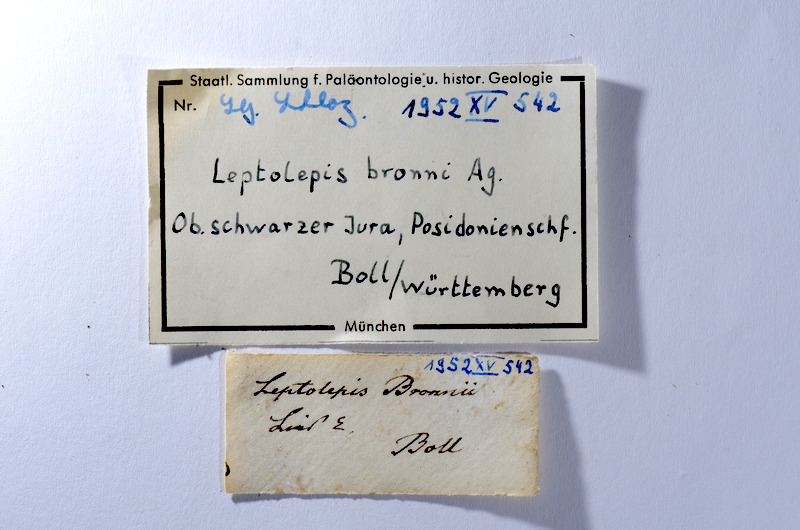 Staatl. Sammlung f. Paläontologie u. histor. Geologie
Nr. 1952 XV 542
Leptolepis bronni Ag.
Ob. schwarzer Jura, Posidonienschf.
Boll/Württemberg
München
1952 XV 542
Leptolepis Bronnii
Boll